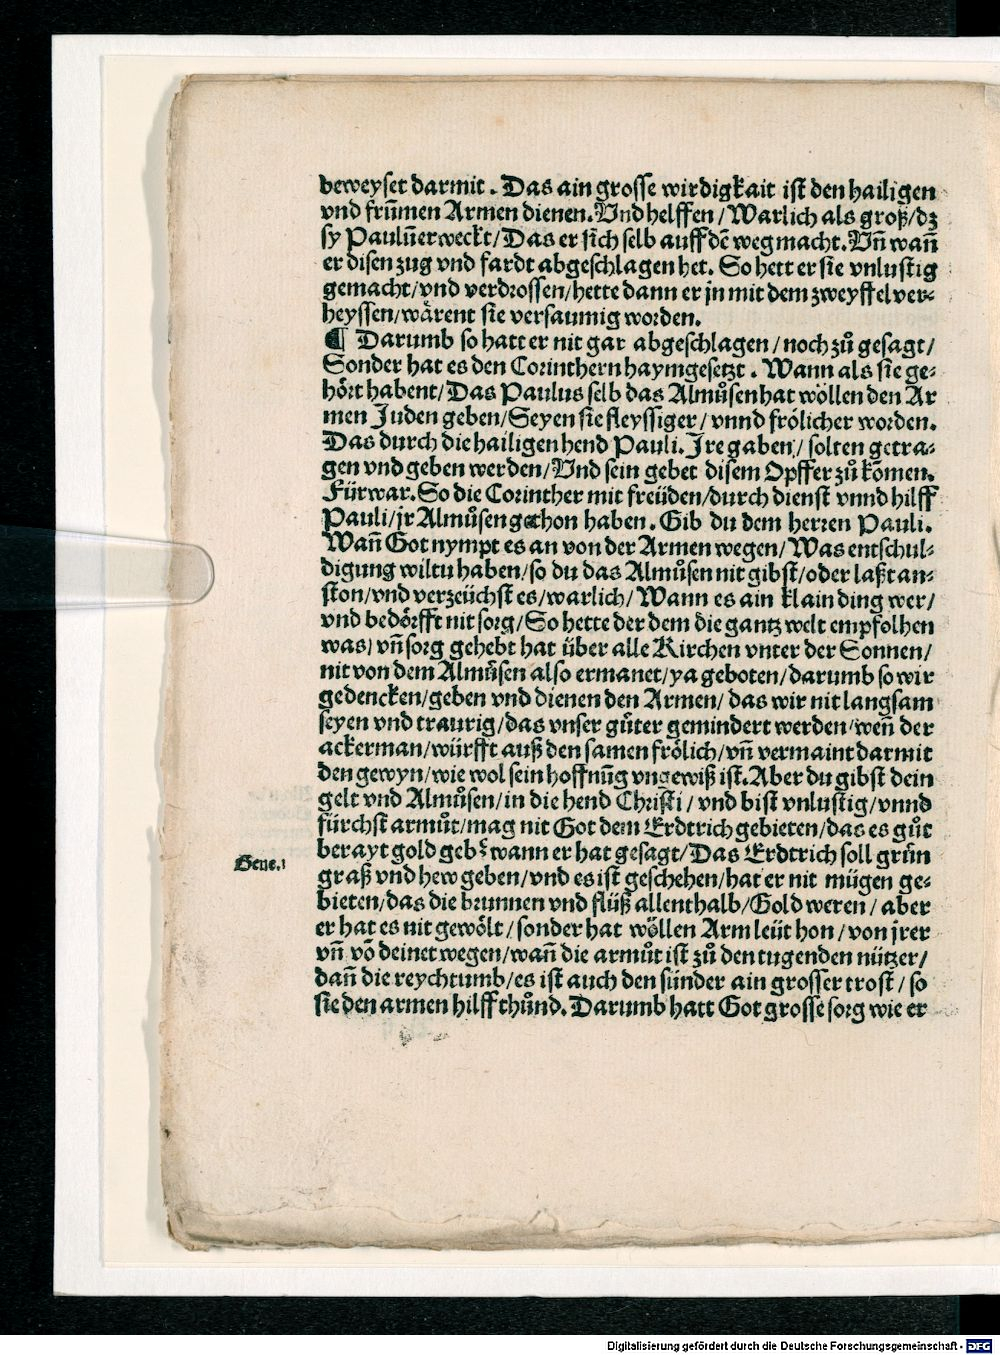 beweyset darmit. Das ain grosse wirdigkait ist den hailigen
vnd frūmen Armen dienen. Vnd helffen / Warlich als groß / dz
sy Paulū erweckt / Das er sich selb auff dē weg macht. Vn̄ wan̄
er disen zug vnd fardt abgeschlagen het. So hett er sie vnlustig
gemacht / vnd verdrossen / hette dann er jn mit dem zweyffel ver⸗
heyssen / wårent sie versaumig worden.
¶ Darumb so hatt er nit gar abgeschlagen / noch zů gesagt /
Sonder hat es den Corinthern haymgesetzt. Wann als sie ge⸗
hört habent / Das Paulus selb das Almůsen hat wöllen den Ar
men Juden geben / Seyen sie fleyssiger / vnnd frölicher worden.
Das durch die hailigen hend Pauli. Jre gaben / solten getra⸗
gen vnd geben werden / Vnd sein gebet disem Opffer zů kōmen.
Fürwar. So die Corinther mit freüden / durch dienst vnnd hilff
Pauli / jr Almůsen gethon haben. Gib du dem herren Pauli.
Wan̄ Got nympt es an von der Armen wegen / Was entschul⸗
digung wiltu haben / so du das Almůsen nit gibst / oder laßt an⸗
ston / vnd verzeüchst es / warlich / Wann es ain klain ding wer /
vnd bedörfft nit sorg / So hette der dem die gantz welt empfolhen
was / vn̄ sorg gehebt hat über alle Kirchen vnter der Sonnen /
nit von dem Almůsen also ermanet / ya geboten / darumb so wir
gedencken / geben vnd dienen den Armen / das wir nit langsam
seyen vnd traurig / das vnser gůter gemindert werden / wen̄ der
ackerman / würfft auß den samen frölich / vn̄ vermaint darmit
den gewyn / wie wol sein hoffnūg vngewiß ist. Aber du gibst dein
gelt vnd Almůsen / in die hend Christi / vnd bist vnlustig / vnnd
fürchst armůt / mag nit Got dem Erdtrich gebieten / das es gůt
berayt gold geb wann er hat gesagt / Das Erdtrich soll grün
Gene.1
graß vnd hew geben / vnd es ist geschehen / hat er nit mügen ge⸗
bieten / das die brunnen vnd flüß allenthalb / Gold weren / aber
er hat es nit gewölt / sonder hat wöllen Arm leüt hon / von jrer
vn̄ vō deinet wegen / wan̄ die armůt ist zů den tugenden nützer /
dan̄ die reychtumb / es ist auch den sünder ain grosser trost / so
sie den armen hilff thůnd. Darumb hatt Got grosse sorg wie er
Digitalisierung gefördert durch die Deutsche Forschungsgemeinschaft - DFG